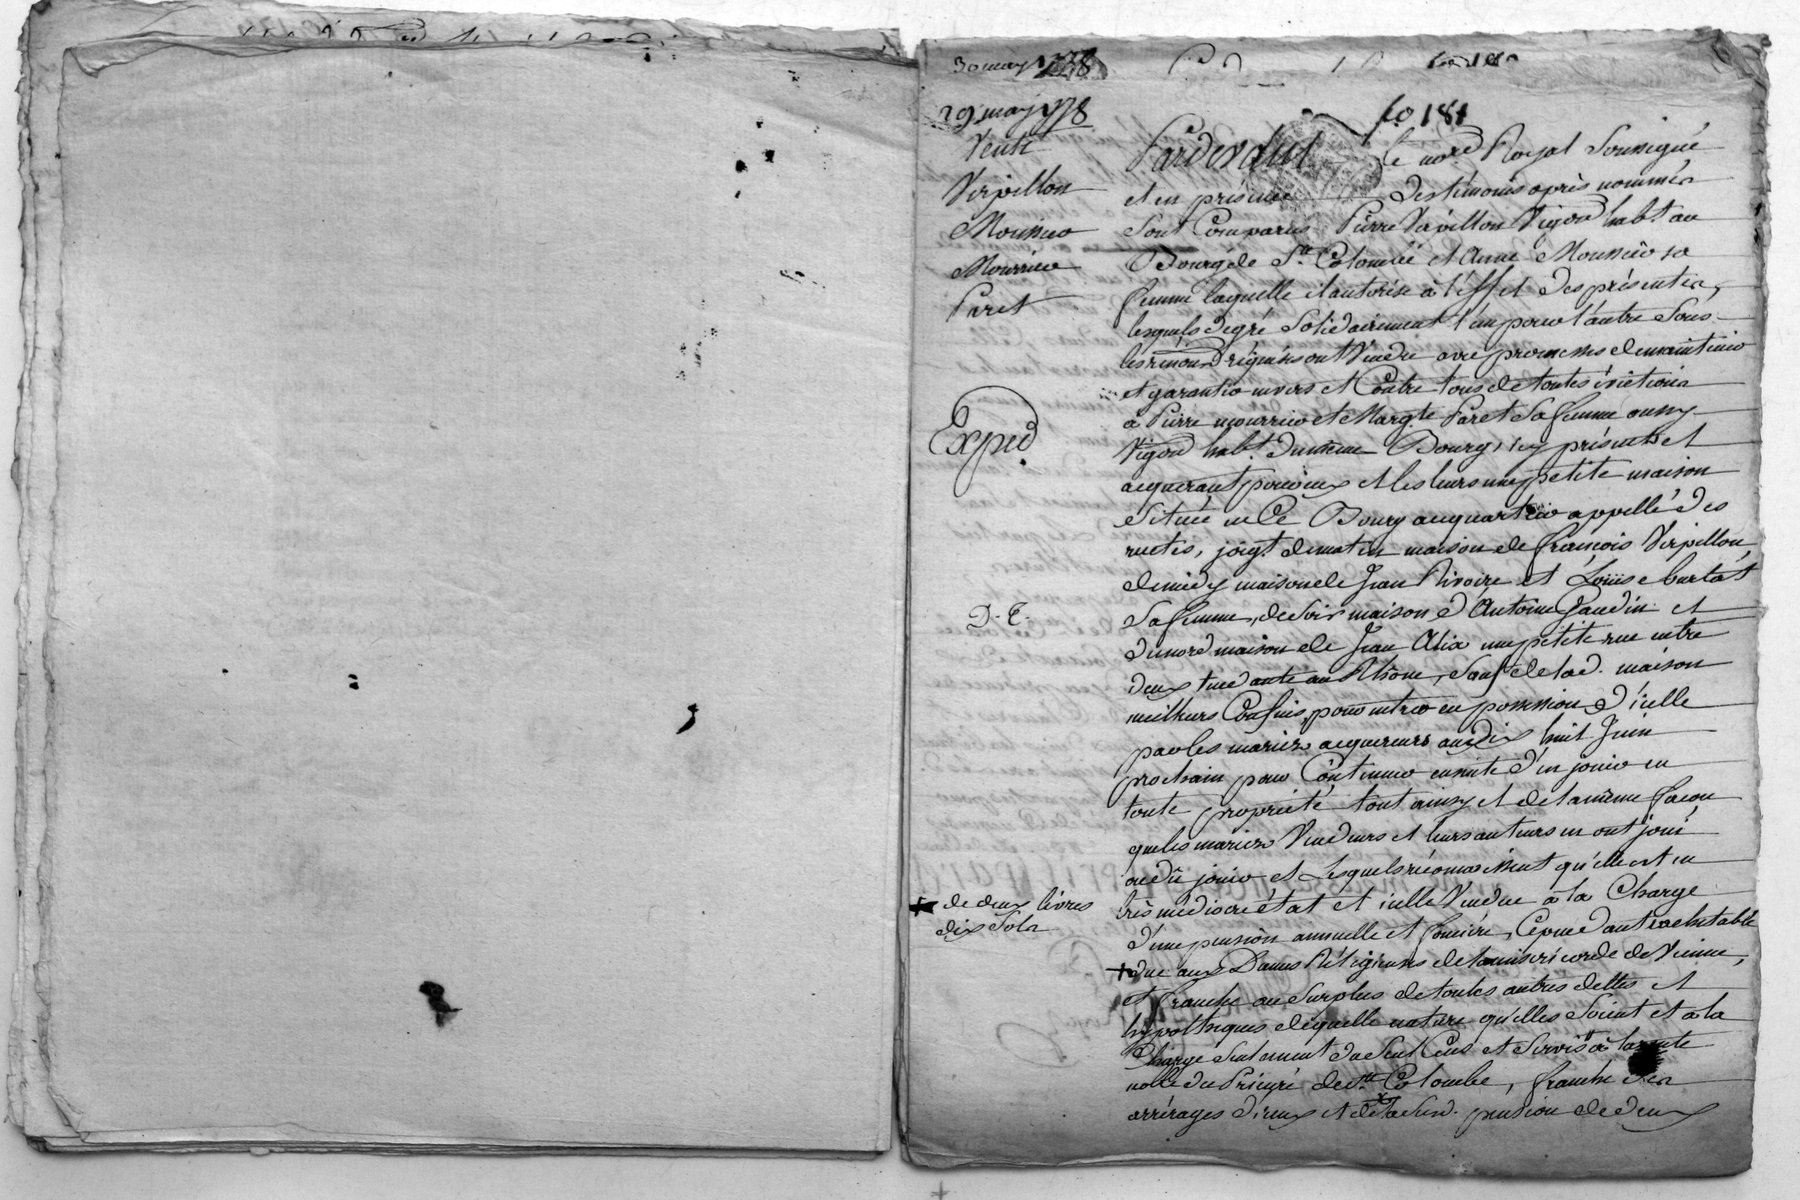 30 may 1778
fo 181
29 may 1778
Vente
Verpillon
Mounier
Mourrier
Paret
Exped
D. T.
+ de deux livres
dix Sols
Pardevant le no.re Royal Soussigné
et en présence des témoins après nommés
Sont Comparus Pierre Verpillon Vigon habt. au
Bourg de Ste Colombe et Anne Mounier sa
femme laquelle il autorise à l'effet des présentes,
lesquels de gré Solidairement l'un pour l'autre Sous
les renon.ons requises ont Vendu avec promesses de maintenir
et garantir envers et Contre tous de toutes évictions
à Pierre mourrier et Margte Paret Sa femme aussy
Vigon habt. du même Bourg, icy présents et
acquerant pour eux et les leurs une petite maison
Située en Ce Bourg au quartier appellé des
ruettes, joigt. de matin maison de françois Verpillon,
de midy maison de Jean Rivoire et Louise burlat
Sa femme, de Soir maison d'Antoine Gaudin et
du nord maison de Jean Alix une petite rue entre
deux tendante au Rhône, Sauf de lad. maison
meilleurs Confins, pour entrer en possession d'icelle
par les mariés acquereurs au dix huit Juin
prochain pour Continuer ensuite d'en jouir en
toute propriété tout ainsy et de la même façon
que les mariés Vendeurs et leurs auteurs en ont joui
ou dû jouir et Lesquels reconnoissent qu'elle est en
très médiocre état et icelle Vendue à la Charge
d'une pension annuelle et foncière, Cependant rachetable
+ due aux Dames Réligieuses de la miséricorde de Vienne,
et franche au Surplus de toutes autres dettes et
hypothèques de quelle nature qu'elles Soient et à la
Charge Seulement du Seul Cens et Servis à la rente
noble du Prieuré de Ste Colombe, franche des
arrérages d'iceux et de la Sud. pension de deux